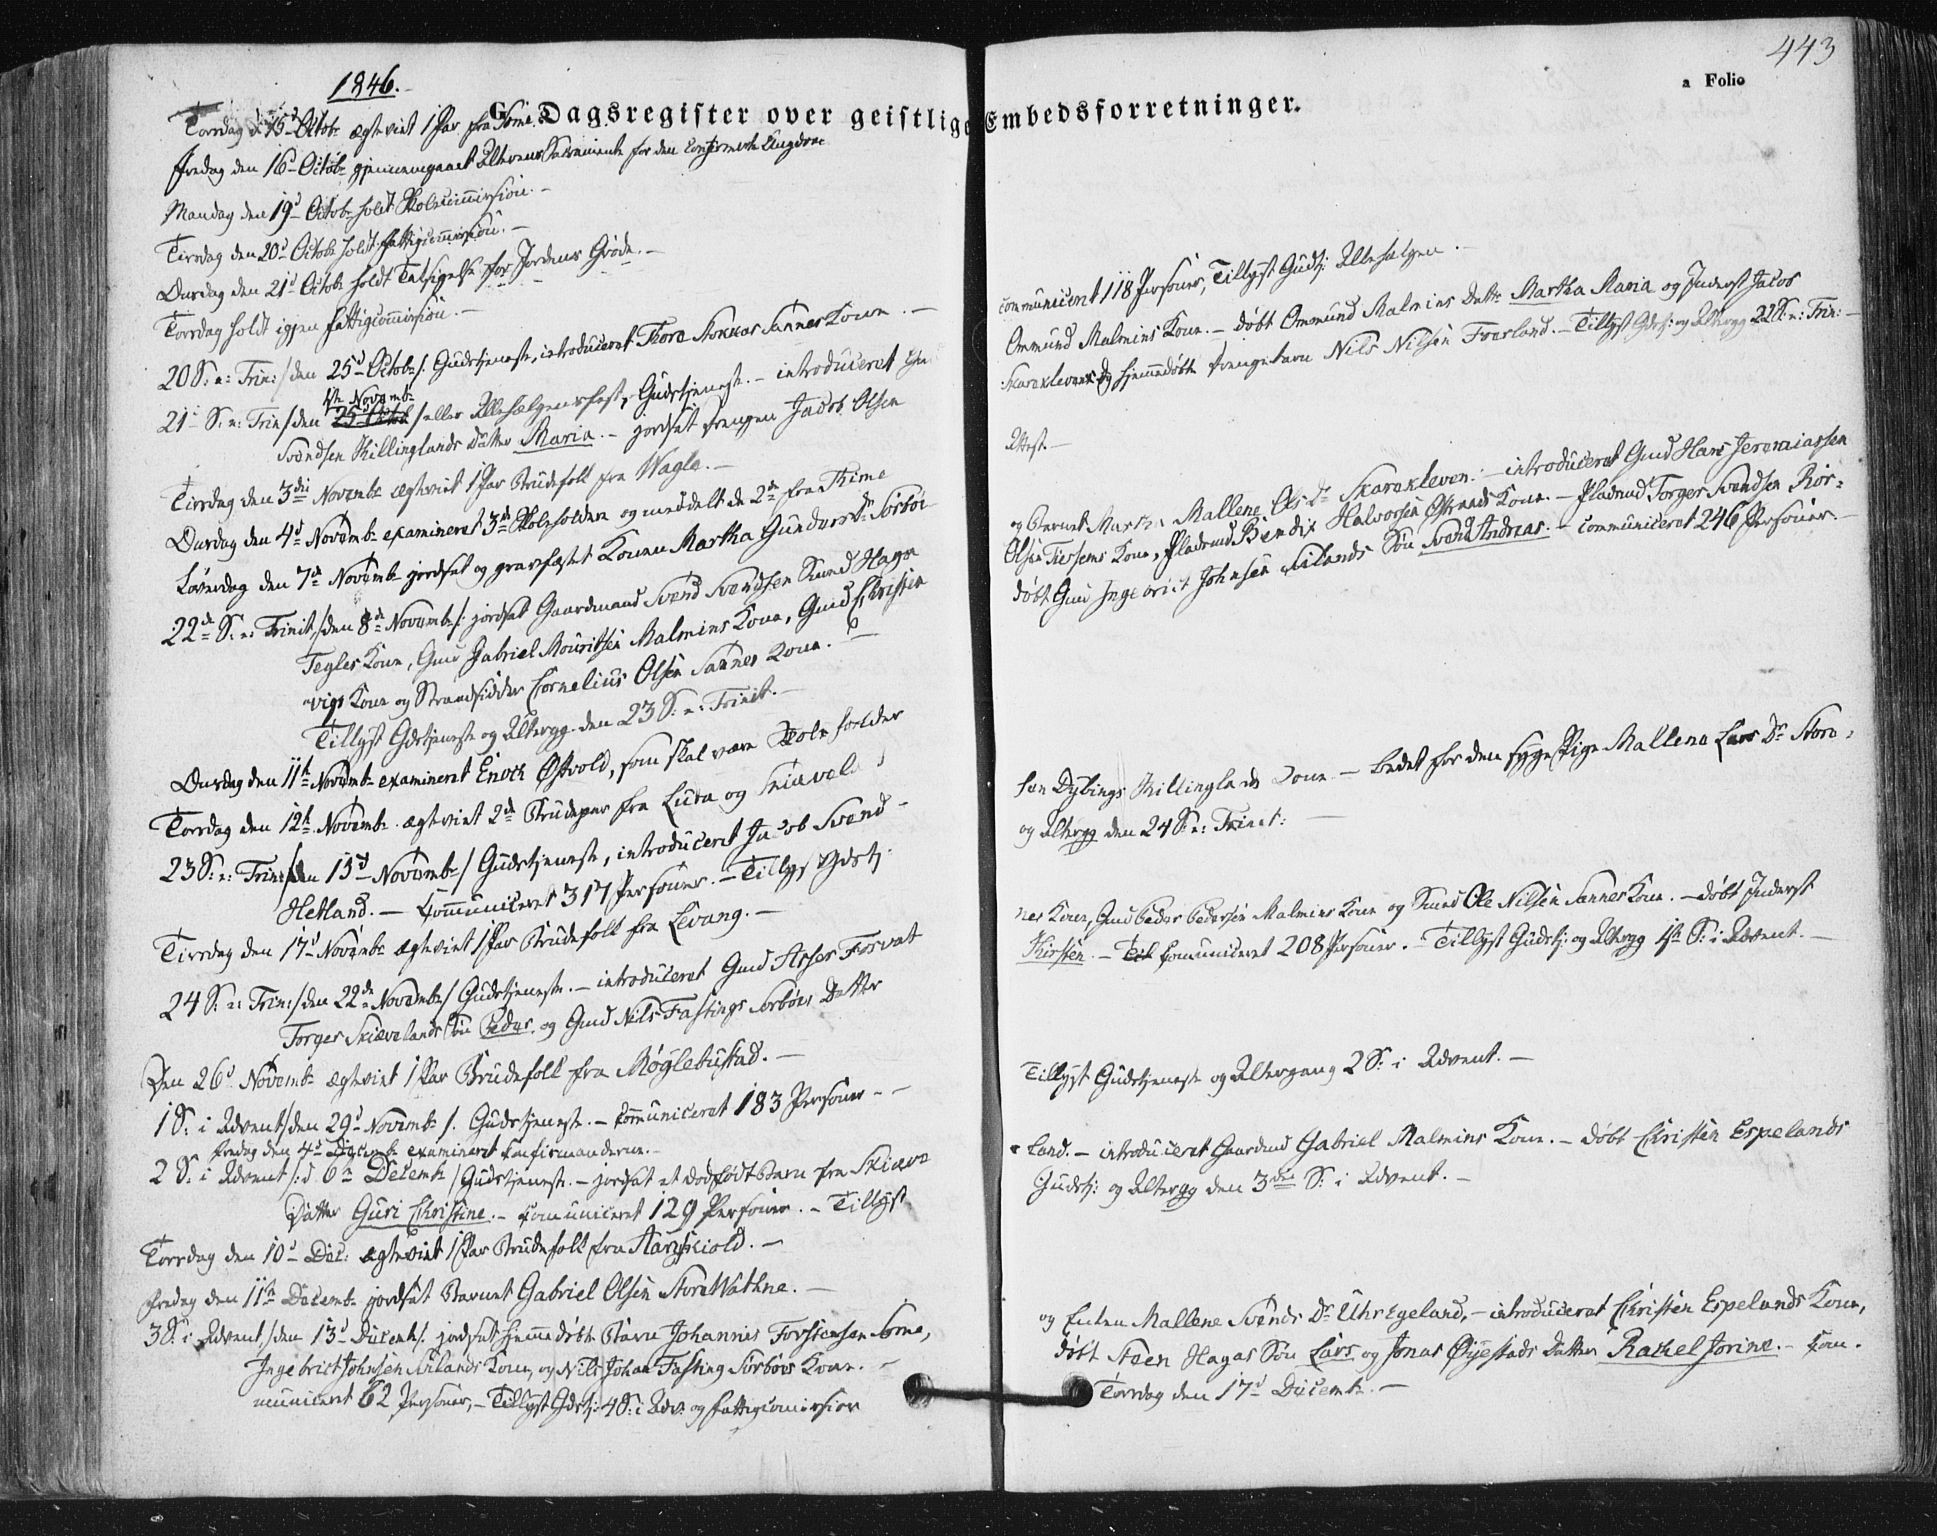 1846.
443
a Folio
G. Dagsregister over geistlige Embedsforretninger.
Torsdag d 15d Octobr ægteviet 1 Par fra Søme.
Fredag den 16d Octobr gjennemgaaet Alterens Sacramente for den confirmerte Ungdom
Mandag den 19d Octobr holdt Skolecommission. –
Tirsdag den 20d Octobr holdt Fattigcommission. –
Onsdag den 21d Octobr holdt Taksigelse for Jordens Grøde. –
Torsdag holdt igjen Fattigcommission. –
20 S: e: Trin: /den 25d Octobr/. Gudstjeneste, introduceret Thore Stokkas Sannes Kone. –
21 S: e: Trin /den 25d Octob 1ste Novembr / eller Allehelgensfest, Gudstjeneste. – introduceret
Svendsen Killinglands Datter Maria. – jordfæt Drengen Jacob Olsen
Tirsdag den 3die Novembr ægteviet 1 Par Brudefolk fra Wagle. –
Onsdag den 4d Novembr examineret 3de Skoleholdere og meddelt de 2de fra Thime
Løverdag den 7de Novembr jordfæt og gravfæstet Konen Martha Gunders Dr Sørboe
22de S: e: Trinit. /den 8de Novembr/: jordfæt Gaardmand Svend Svendsen Hage
Tegles Kone, Gmd Gabriel Mouritsen Malmins Kone, Gmd Christen
vigs Kone og Strandsidder Cornelius Olsen Sannes Kone. –
Tillyst Gdstjeneste og Altergg. den 23 S: e: Trinit. –
Onsdag den 11te Novembr examineret Enock Østvold, som skal være Skoleholder
Torsdag den 12te Novembr ægteviet 2de Brudepar fra Lura og Skiævela
23 S: e: Trin: /den 15d Novembr/ Gudstjeneste, introduceret Jacob Svend-
Hetland. – Communiceret 317 Personer. – Tillyst Gdstj:
Tirsdag den 17d Novembr ægteviet 1 Par Brudefolk fra Levang. –
24 S: e: Trin: /den 22de Novembr/ Gudstjeneste. – introduceret Gmd Asser Forvat
Torger Skiævelands Søn Peder. og Gmd Nils Fastings Sørbøes Datter
Den 26d Novembr ægteviet 1 Par Brudefolk fra Møglebustad. –
1 S: i Advent /den 29d Novembr/. Gudstjeneste. – Communiceret 183 Personer –
Fredag den 4d Decembr examineret Confirmanderne. –
2 S: i Advent /: d 6te Decembr/ Gudstjeneste. – jordfæt et dødfødt Barn fra Skiæve
Datter Guri Christine. – Communiceret 129 Personer. – Tillyst
Torsdag den 10d Dec: ægteviet 1 Par Brudefolk fra
Fredag den 11te Decembr jordfæt Barnet Gabriel Olsen Store Wathne. –
3 S: i Advent /den 13d Decembr/. jordfæt hjemmedøbt Barn Johannes Torstensen Søme,
Ingebrict Johnsen Seilands Kone, og Nils Johan Fasting Sørboes Kone. –
municeret 62 Personer, – Tillyst Gdstj: 4 S: i Adv: og Fattigcommission
communiceret 118 Personer, Tillyst Gudstj: Allehelgen. –
Ommund Malmins Kone. – døbt Ommund Malmins Dattr Martha Maria og Inderst Jacob
Skaraxleven og hjemmedøbt Drengebarn Nils Nilsen Foerland. – Tillyst Gdstj: og Altergg 22 S: e: Trin: –
Attest. –
og Barnet Martha Mallene Ols Dr Skaraxleven: – introduceret Gmd Hans Jeremiassen
Olsen Tiessems Kone, Pladsmd Bendix Halvorsen Kone. – Pladsmd Torger Svendsen Rør-
døbt Gmd Ingebrict Johnsen Seilands Søn Svend Andreas. – Communiceret 246 Personer. –
sen Dybings Killinglands Kone. – bedet for den syge Pige Mallena Lars Dr Store-
og Altergg den 24 S: e: Trinit: –
nes Kone, Gmd Peder Pedersen Malmins Kone og Smed Ole Nilsen Sannes Kone. – døbt Inderst
Kirsten. – Til Communiceret 208 Personer. – Tillyst Gudstj: og Altergg 1ste S: i Advent. –
Tillyst Gudstjeneste og Altergang 2 S: i Advent. –
land. – introduceret Gaardmd Gabriel Malmins Kone. – døbt Christen Espelands
Gudstj: og Altergg den 3die S: i Advent. –
og Enken Mallene Svends Dr Uhr Egeland, – introduceret Christen Espelands Kone,
døbt Steen Hagas Søn Lars og Jonas Øyestads Datter Rachel Jorine. – Com.
Torsdag den 17d Decembr. –